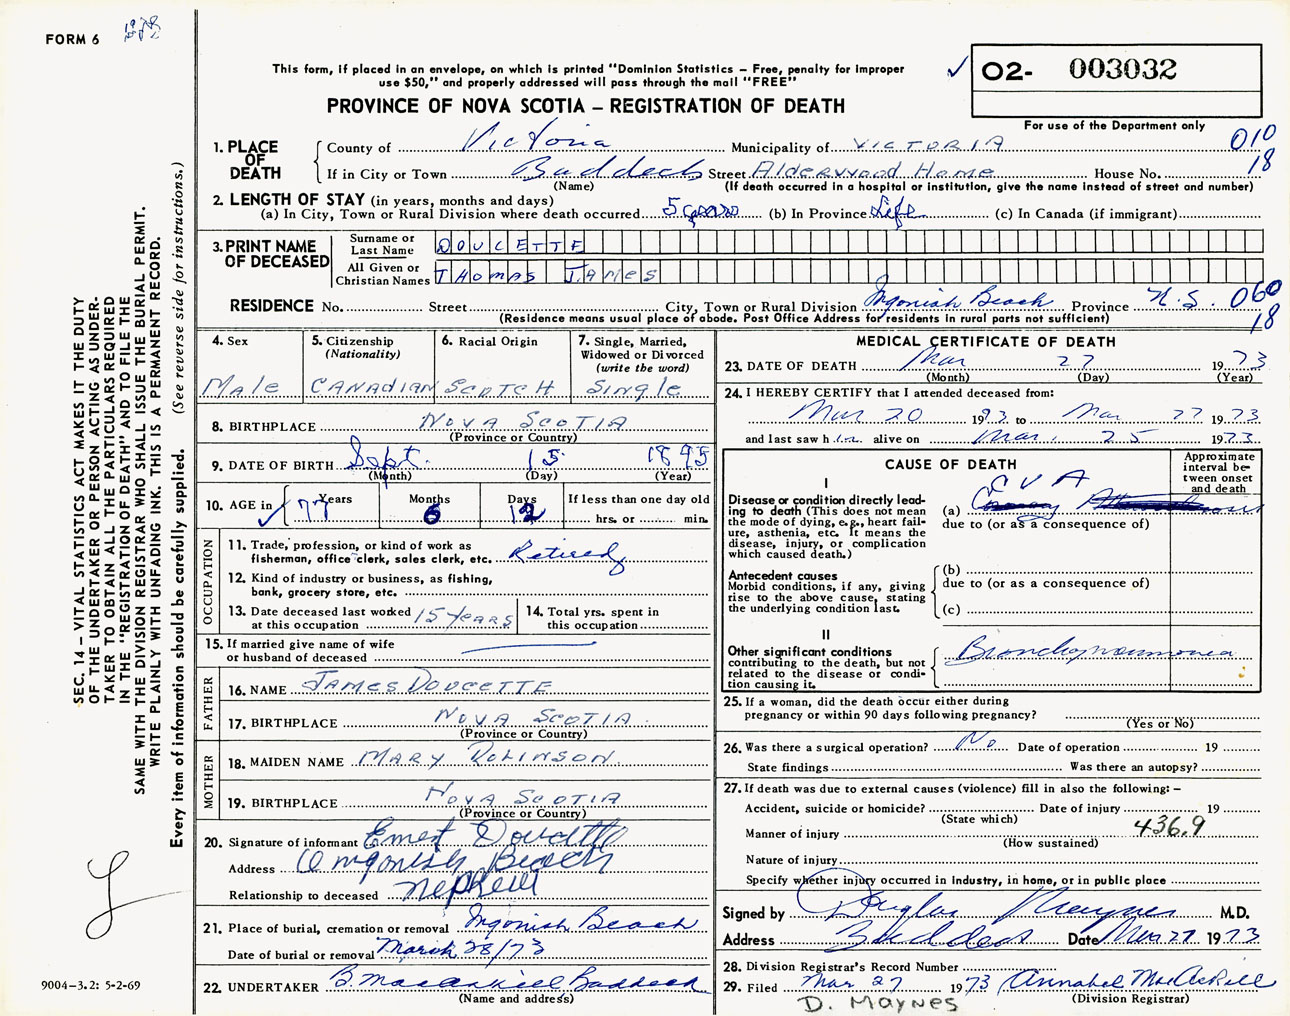 FORM 6
This form, if placed in an envelope, on which is printed "Dominion Statistics – Free, penalty for improper
use $50," and properly addressed will pass through the mail "FREE"
PROVINCE OF NOVA SCOTIA – REGISTRATION OF DEATH
02- 003032
For use of the Department only
1. PLACE OF DEATH
County of Victoria Municipality of VICTORIA 010
If in City or Town Baddeck Street Alderwood Home House No. 18
(Name) (If death occurred in a hospital or institution, give the name instead of street and number)
2. LENGTH OF STAY (in years, months and days)
(a) In City, Town or Rural Division where death occurred 5 years (b) In Province Life (c) In Canada (if immigrant)
3. PRINT NAME OF DECEASED
Surname or Last Name DOUCETTE
All Given or Christian Names THOMAS JAMES
RESIDENCE No. Street City, Town or Rural Division Ingonish Beach Province N.S. 060
18
(Residence means usual place of abode. Post Office Address for residents in rural parts not sufficient)
4. Sex
Male
5. Citizenship
(Nationality)
CANADIAN
6. Racial Origin
SCOTCH
7. Single, Married,
Widowed or Divorced
(write the word)
Single
8. BIRTHPLACE NOVA SCOTIA
(Province or Country)
9. DATE OF BIRTH Sept. 15 1895
(Month) (Day) (Year)
10. AGE in Years Months Days If less than one day old
77 6 12 hrs. or min.
OCCUPATION
11. Trade, profession, or kind of work as
fisherman, office clerk, sales clerk, etc. Retired
12. Kind of industry or business, as fishing,
bank, grocery store, etc.
13. Date deceased last worked
at this occupation 15 years
14. Total yrs. spent in
this occupation
15. If married give name of wife
or husband of deceased
FATHER
16. NAME JAMES DOUCETTE
17. BIRTHPLACE NOVA SCOTIA
(Province or Country)
MOTHER
18. MAIDEN NAME MARY
19. BIRTHPLACE NOVA SCOTIA
(Province or Country)
20. Signature of informant Ernest Doucette
Address Ingonish Beach
Relationship to deceased Nephew
21. Place of burial, cremation or removal Ingonish Beach
Date of burial or removal March 28/73
22. UNDERTAKER B. MacAskill Baddeck
(Name and address)
MEDICAL CERTIFICATE OF DEATH
23. DATE OF DEATH Mar 27 1973
(Month) (Day) (Year)
24. I HEREBY CERTIFY that I attended deceased from:
Mar 20 1973 to Mar 27 1973
and last saw him alive on Mar. 25 1973
CAUSE OF DEATH
Approximate
interval be-
tween onset
and death
I
Disease or condition directly lead-
ing to death (This does not mean
the mode of dying, e.g., heart fail-
ure, asthenia, etc. It means the
disease, injury, or complication
which caused death.)
CVA
(a)
due to (or as a consequence of)
Antecedent causes
Morbid conditions, if any, giving
rise to the above cause, stating
the underlying condition last.
(b)
due to (or as a consequence of)
(c)
II
Other significant conditions
contributing to the death, but not
related to the disease or condi-
tion causing it.
Bronchopneumonia
25. If a woman, did the death occur either during
pregnancy or within 90 days following pregnancy?
(Yes or No)
26. Was there a surgical operation? No Date of operation 19
State findings Was there an autopsy?
27. If death was due to external causes (violence) fill in also the following: –
Accident, suicide or homicide? Date of injury 19
(State which)
Manner of injury 436.9
(How sustained)
Nature of injury
Specify whether injury occurred in industry, in home, or in public place
Signed by Douglas Maynes M.D.
Address Baddeck Date Mar 27 1973
28. Division Registrar's Record Number
29. Filed Mar 27 1973 Annabel MacAskill
D. MAYNES (Division Registrar)
SEC. 14 – VITAL STATISTICS ACT MAKES IT THE DUTY
OF THE UNDERTAKER OR PERSON ACTING AS UNDER-
TAKER TO OBTAIN ALL THE PARTICULARS REQUIRED
IN THE "REGISTRATION OF DEATH" AND TO FILE THE
SAME WITH THE DIVISION REGISTRAR WHO SHALL ISSUE THE BURIAL PERMIT.
WRITE PLAINLY WITH UNFADING INK. THIS IS A PERMANENT RECORD.
Every item of information should be carefully supplied. (See reverse side for instructions.)
9004-3.2: 5-2-69